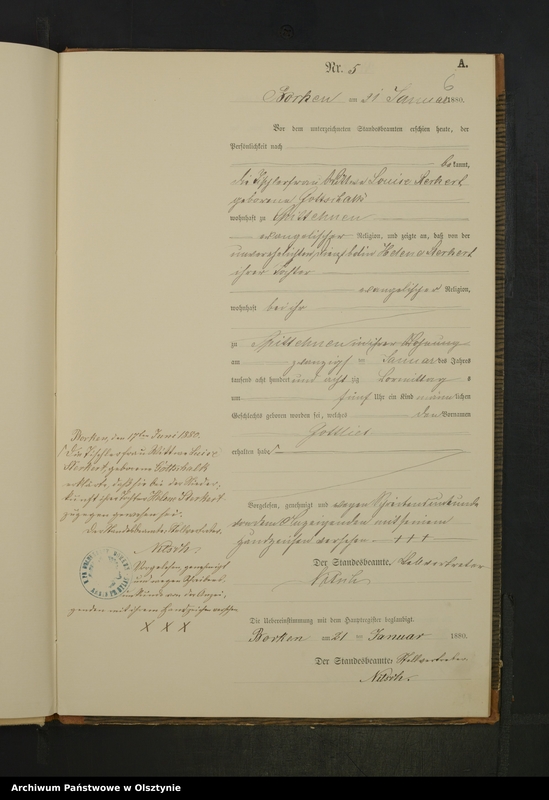 A.
Nr. 5
6
Borken am 21 Januar 1880.
Vor dem unterzeichneten Standesbeamten erschien heute, der
Persönlichkeit nach
bekannt,
die Tischlerfrau Wittwe Louise Sterkert
geborene Gottschalk
wohnhaft zu Spittehnen
evangelischer Religion, und zeigte an, daß von der
unverehelichten Helene Sterkert
ihrer Tochter
evangelischer Religion,
wohnhaft bei ihr
zu Spittehnen in ihrer Wohnung
am zwanzigsten Januar des Jahres
tausend acht hundert und achtzig Vormittag s
um fünf Uhr ein Kind männlichen
Geschlechts geboren worden sei, welches den Vornamen
Gottlieb
erhalten habe
Vorgelesen, genehmigt und wegen Schreibensunkunde
von dem Anzeigenden mit seinem
Handzeichen versehen +++
Der Standesbeamte. Stellvertreter
Nitsch
Die Uebereinstimmung mit dem Hauptregister beglaubigt.
Borken am 21 ten Januar 1880.
Der Standesbeamte. Stellvertreter
Nitsch.
Borken, den 17ten Juni 1880.
Die Tischlerfrau Wittwe Louise
Sterkert, geborene Gottschalk
erklärte, daß sie bei der Nieder-
kunft ihrer Tochter Helene Sterkert
zugegen gewesen sei.
Der Standesbeamte Stellvertreter.
Nitsch.
Vorgelesen genehmigt
und wegen Schreibens-
unkunde von der Anzei-
genden mit ihrem Handzeichen versehen
X X X
Archiwum Państwowe w Olsztynie